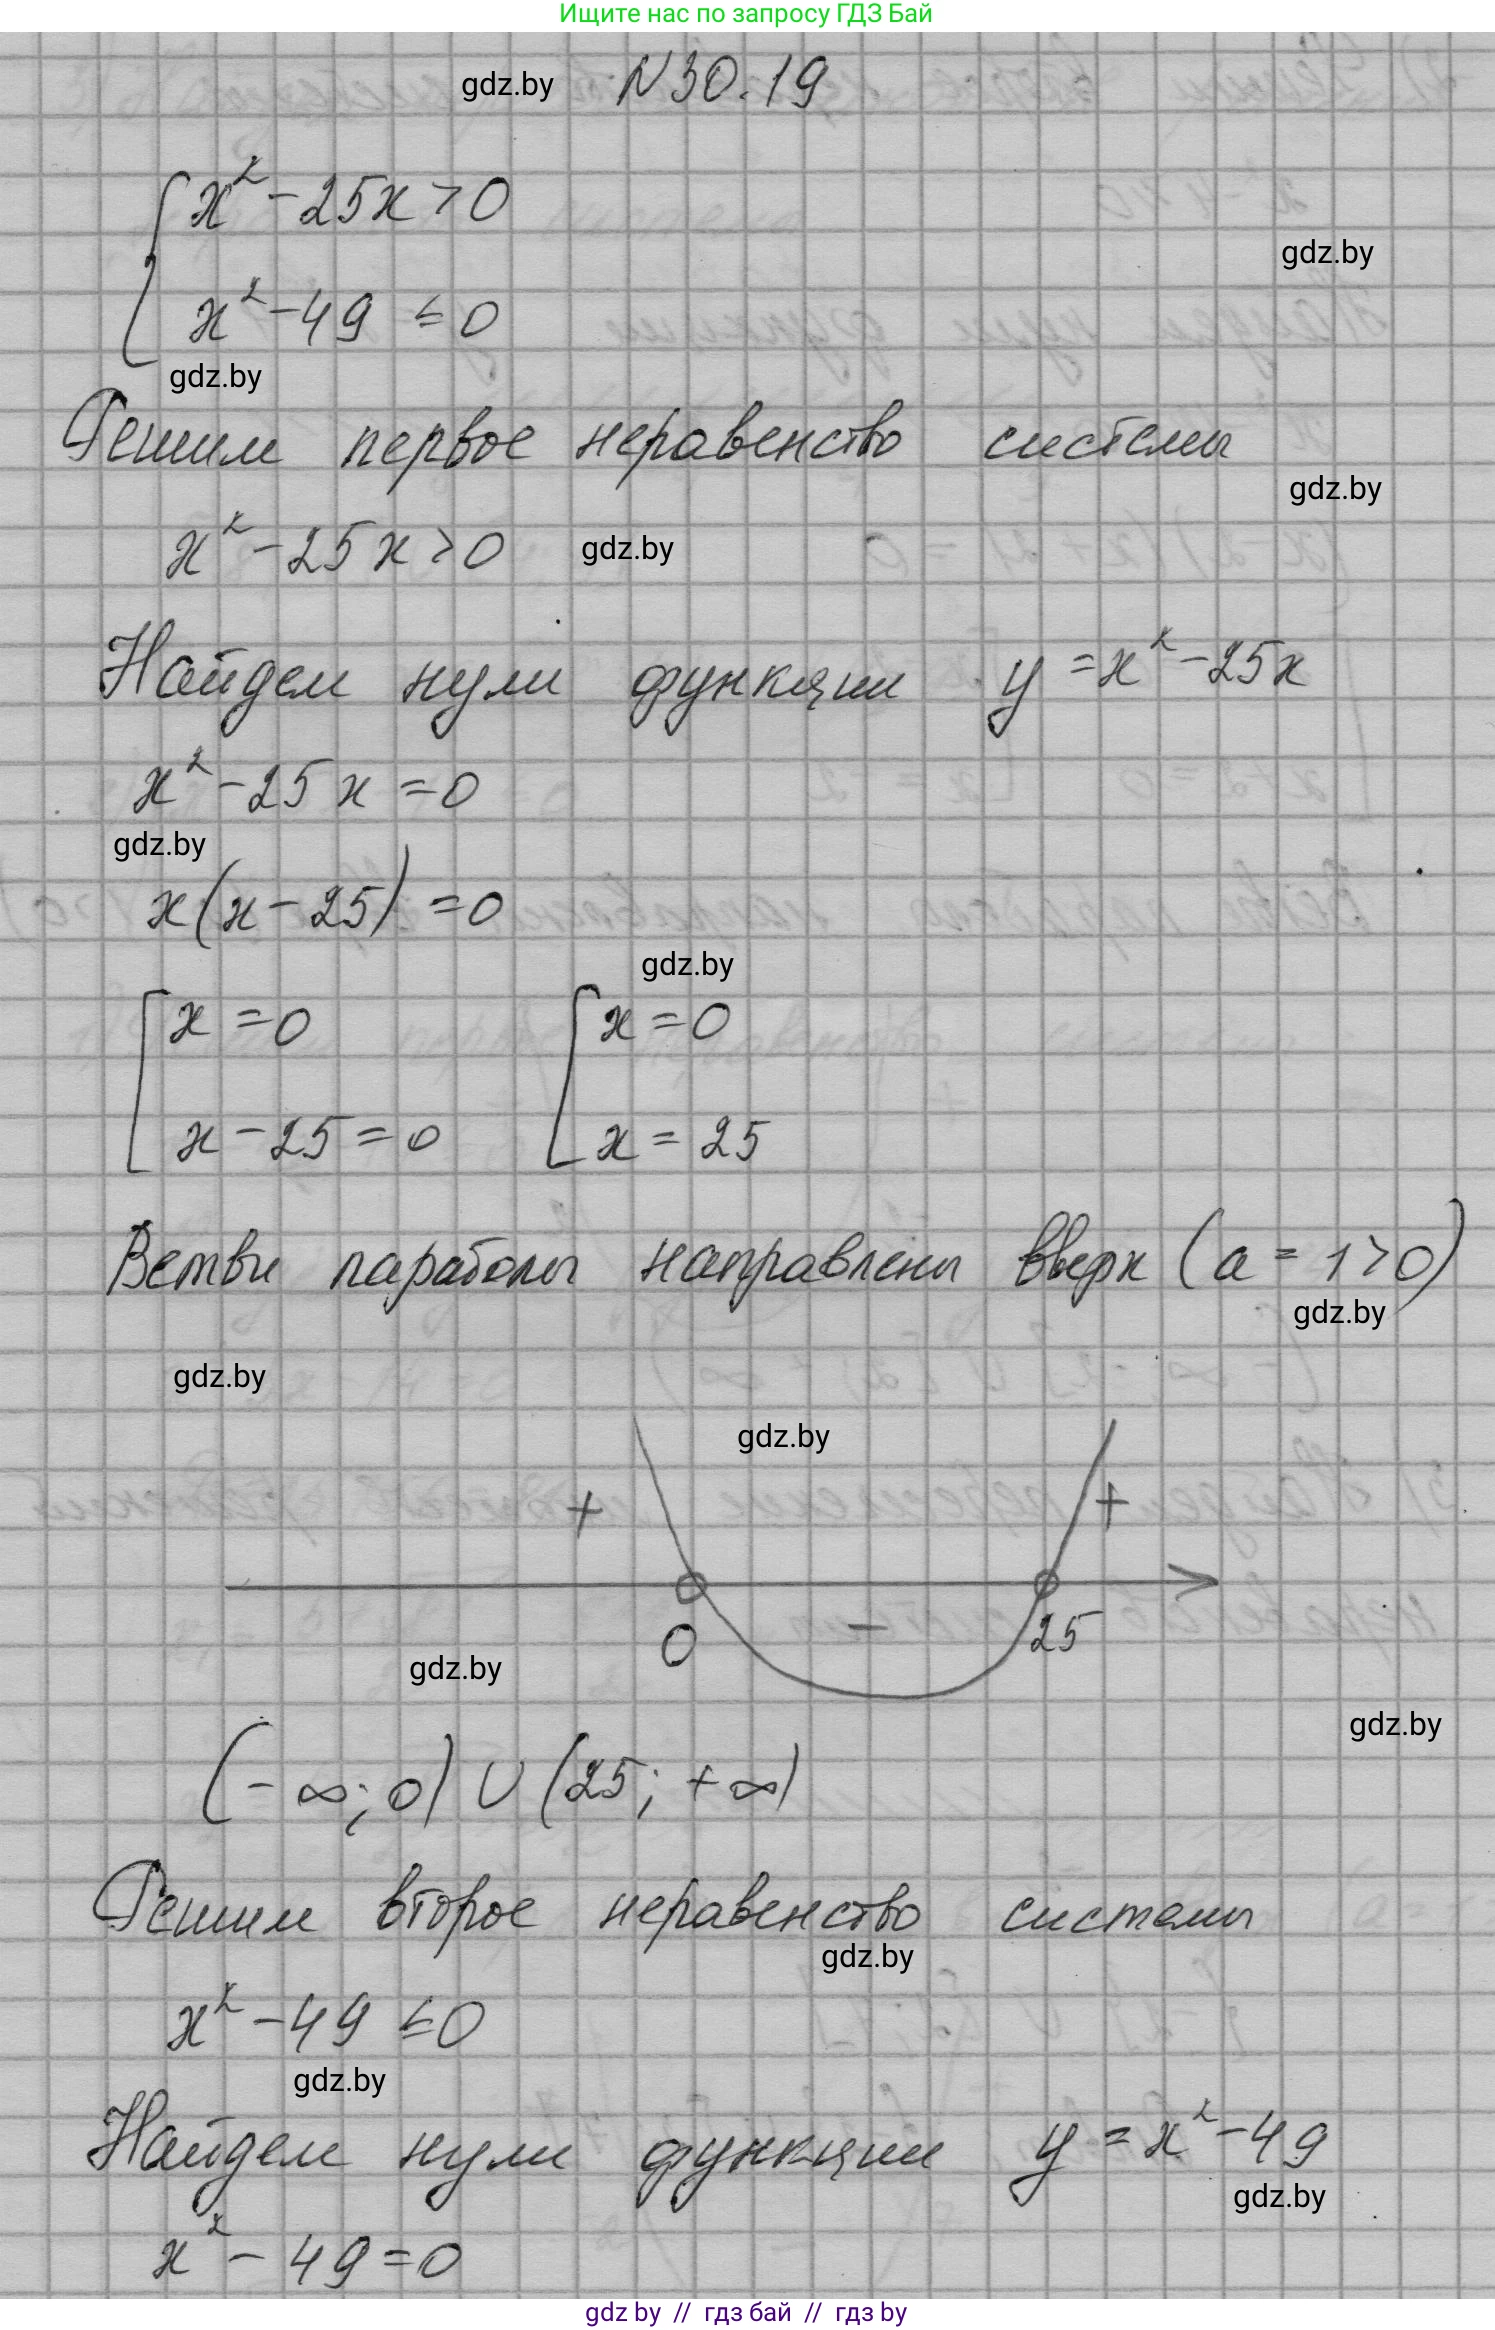 Ищите нас по запросу ГДЗ Бай
gdz.by N 30.19
x² - 25x > 0
gdz.by
x² - 49 ≤ 0
gdz.by
Решим первое неравенство системы
gdz.by
x² - 25x > 0 gdz.by
Найдем нули функции y = x² - 25x
x² - 25x = 0
gdz.by
x(x - 25) = 0
gdz.by
x = 0 x = 0
x - 25 = 0 x = 25
Ветви параболы направлены вверх (a = 1 > 0)
gdz.by
gdz.by
gdz.by
+ +
0 - 25
gdz.by
gdz.by
(-∞; 0) ∪ (25; +∞)
Решим второе неравенство системы
gdz.by
x² - 49 ≤ 0
gdz.by
Найдем нули функции y = x² - 49
gdz.by
x² - 49 = 0
gdz by // гдз бай // гдз by